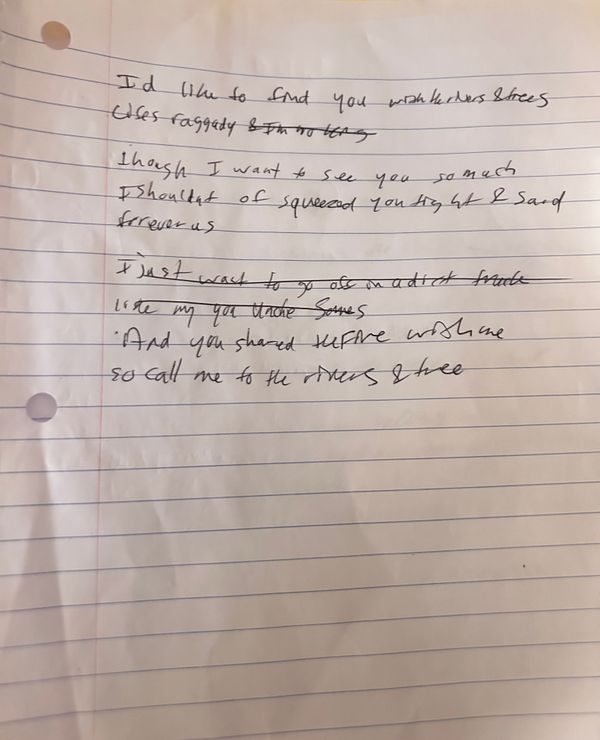 I'd like to find you with the rivers & trees
Lifes raggady & I'm no
Though I want to see you so much
I shouldat of squeezed you tight & said
forever us
I just want to go off on a dirt track
like my you Uncle
And you shared the fire with me
so call me to the rivers & tree